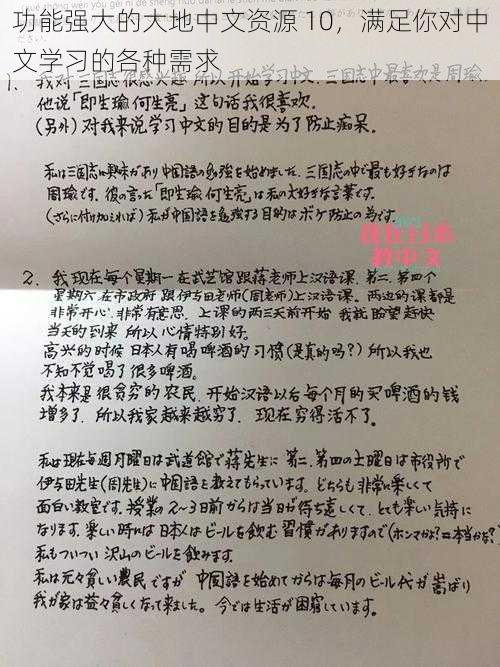 功能强大的大地中文资源 10，满足你对中文学习的各种需求
1. 我对三国志很感兴趣.所以开始学习中文.三国志中最喜欢是周瑜.
他说「即生瑜何生亮」这句话我很喜欢.
(另外) 对我来说学习中文的目的是为了防止痴呆.
私は三国志に興味があり 中国語の勉強を始めました.三国志の中で最も好きなのは
周瑜です. 彼の言った「即生瑜何生亮」は私の大好きな言葉です.
(さらに付け加えれば) 私が中国語を勉強する目的はボケ防止の為です.
我在日本
教中文
2. 我现在每个星期一在武艺馆跟蒋老师上汉语课.第二.第四个
星期六在市政府跟伊与田老师(周老师)上汉语课. 两边的课都是
非常开心.非常有意思. 上课的两三天前开始 我就盼望赶快
当天的到来 所以心情特别好.
高兴的时候 日本人有喝啤酒的习惯(是真的吗?) 所以我也
不知不觉喝了很多啤酒.
我本来是很贫穷的农民.开始汉语以后每个月的买啤酒的钱
增多了. 所以我家越来越穷了. 现在穷得活不了.
私は現在毎週月曜日は武道館で蒋先生に 第二.第四の土曜日は市役所で
伊与田先生(周先生)に中国語を教えてもらっています. どちらも非常に楽しくて
面白い教室です. 授業の2〜3日前からは当日が待ち遠しくて.とても楽しい気持に
なります. 楽しい時には日本人はビールを飲む習慣がありますので(ホンマかよ?=本当かな?)
私もついつい 沢山のビールを飲みます.
私は元々貧しい農民ですが 中国語を始めてからは毎月のビール代が嵩ばり
我が家は益々貧しくなって来ました. 今では生活が困窮しています.